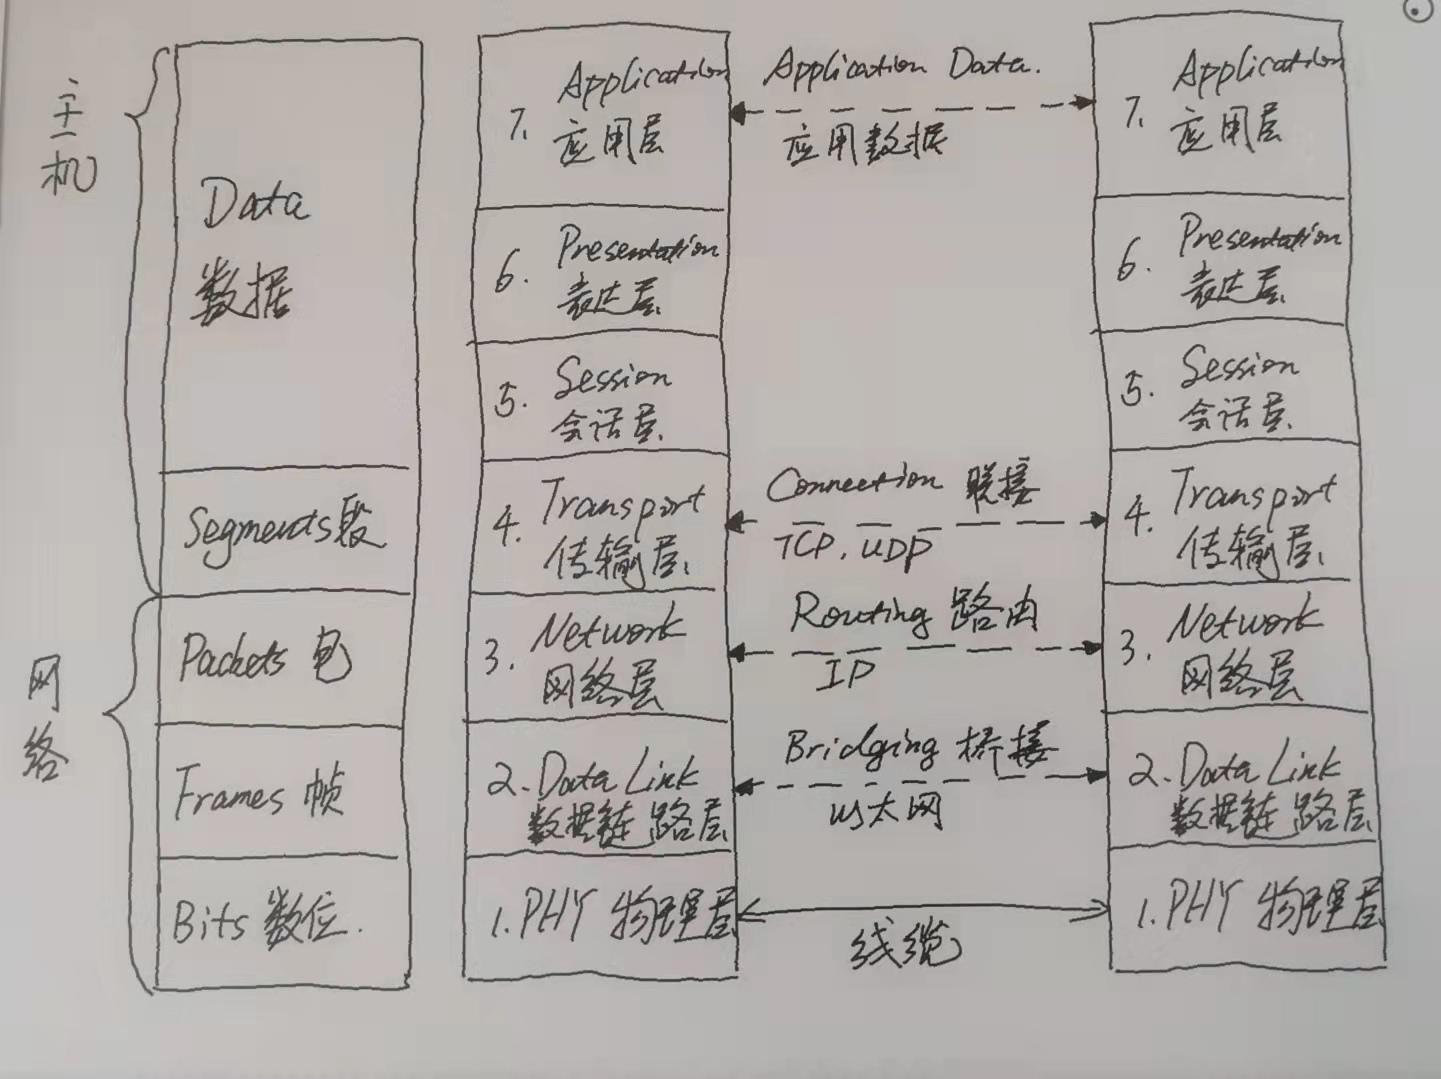 主机
Data
数据
Segments 段
网络
Packets 包
Frames 帧
Bits 数位.
7. Application
应用层
6. Presentation
表达层
5. Session
会话层
4. Transport
传输层
3. Network
网络层
2. Data Link
数据链路层
1. PHY 物理层
Application Data.
应用数据
Connection 联接
TCP, UDP
Routing 路由
IP
Bridging 桥接
以太网
线缆
7. Application
应用层
6. Presentation
表达层
5. Session
会话层
4. Transport
传输层
3. Network
网络层
2. Data Link
数据链路层
1. PHY 物理层